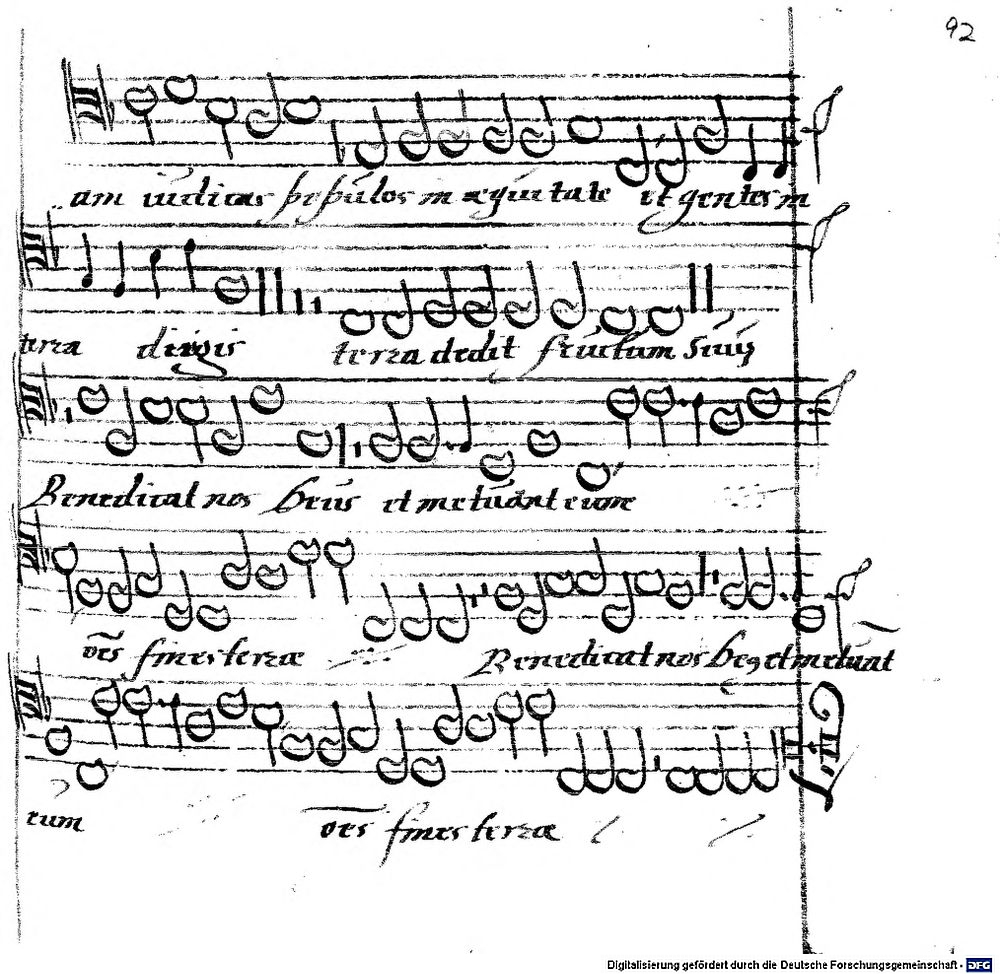 92
am iudicas populos in æquitate et gentes in
terra dirigis terra dedit fructum suu
Benedicat nos Deus et metuant eum
oēs fines terræ Benedicat nos Deg et metuāt
eum oēs fines terræ
Digitalisierung gefördert durch die Deutsche Forschungsgemeinschaft - DFG